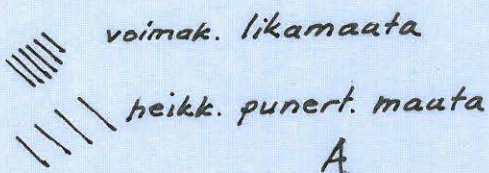 voimak. likamaata
heikk. punert. maata
A